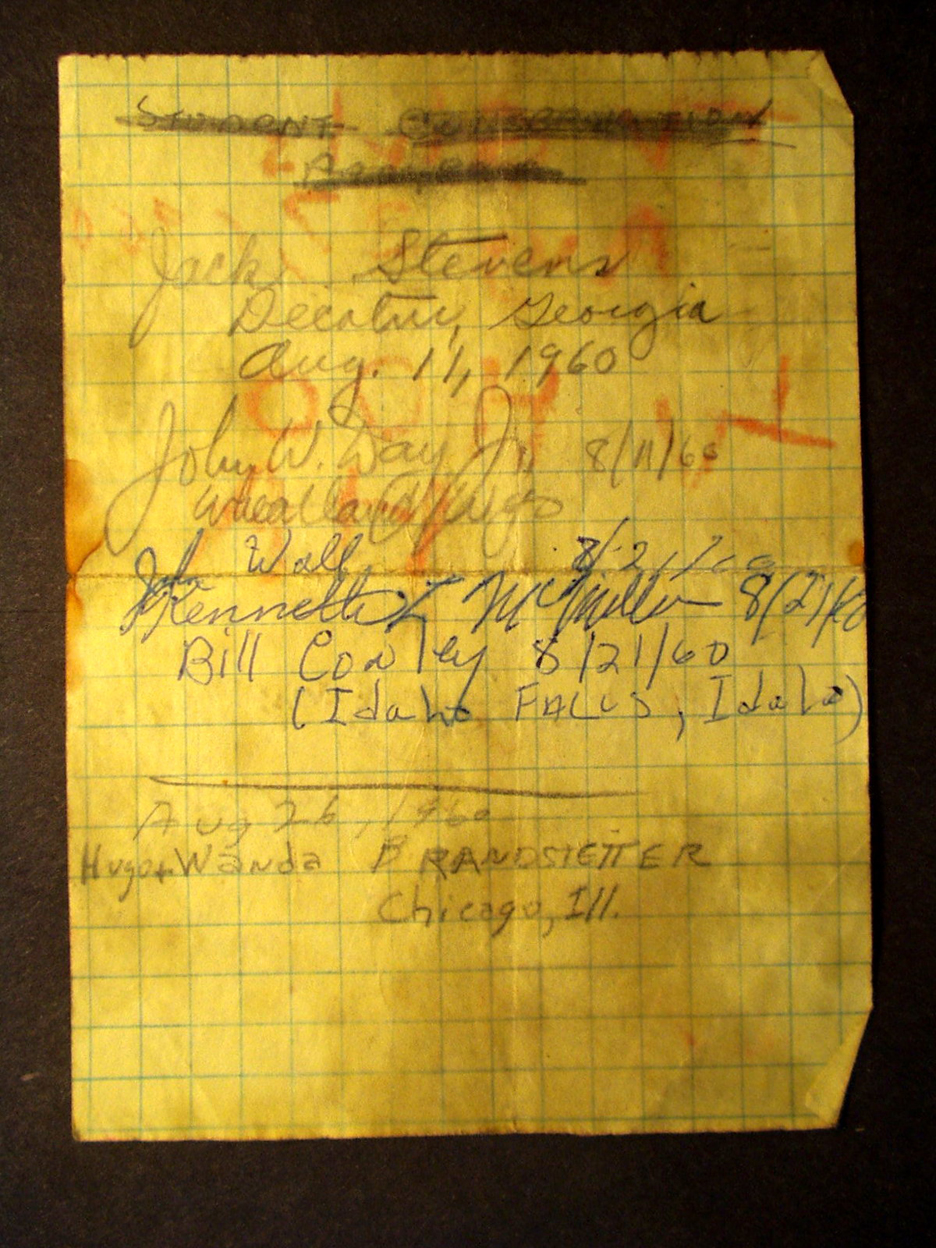 STUDENT CONSERVATION
Jack Stevens
Decatur, Georgia
Aug. 11, 1960
John W. Day Jr. 8/11/60
John Wall 8/21/60
Kenneth L McMillan 8/21/60
Bill Conley 8/21/60
(Idaho FALLS, Idaho)
Aug 26, 1960
Hugo + Wanda BRANDSTETTER
Chicago, Ill.